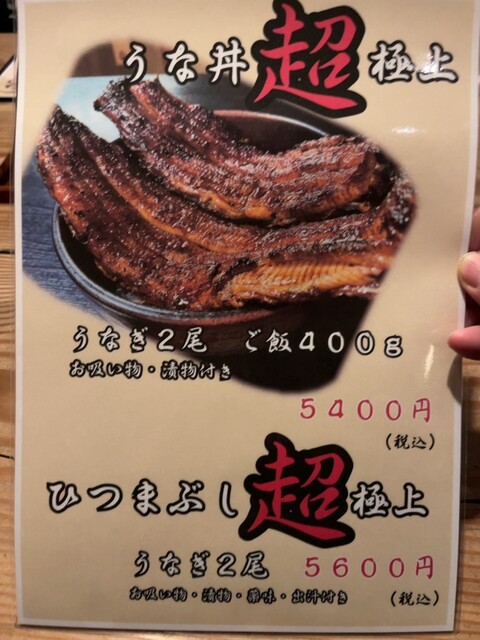 うな丼 超 極上
うなぎ2尾 ご飯400g
お吸い物・漬物付き
5400円
(税込)
ひつまぶし 超 極上
うなぎ2尾 5600円
お吸い物・漬物・薬味・出汁付き (税込)